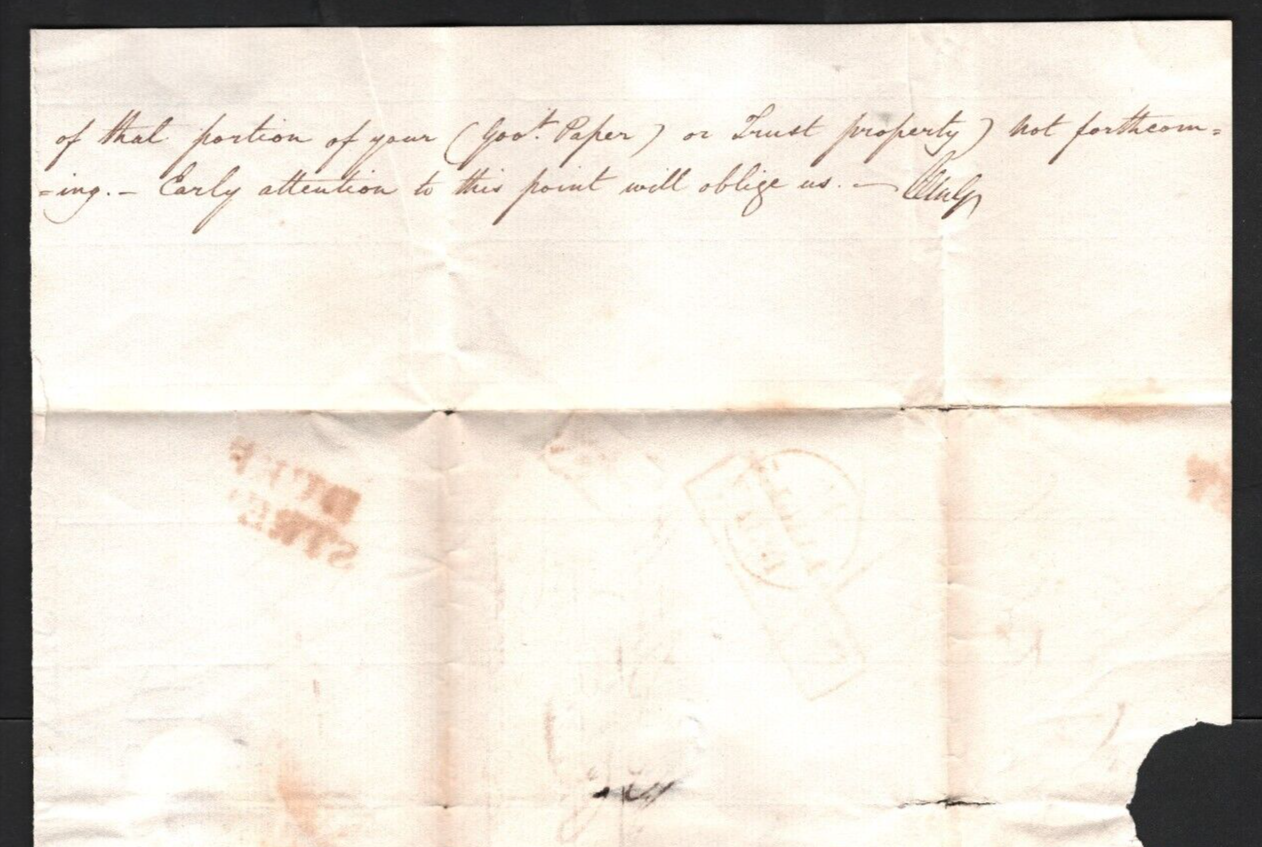 of that portion of your (Gov.t Paper) or Trust property) not forthcom=
=ing. – Early attention to this point will oblige us. —